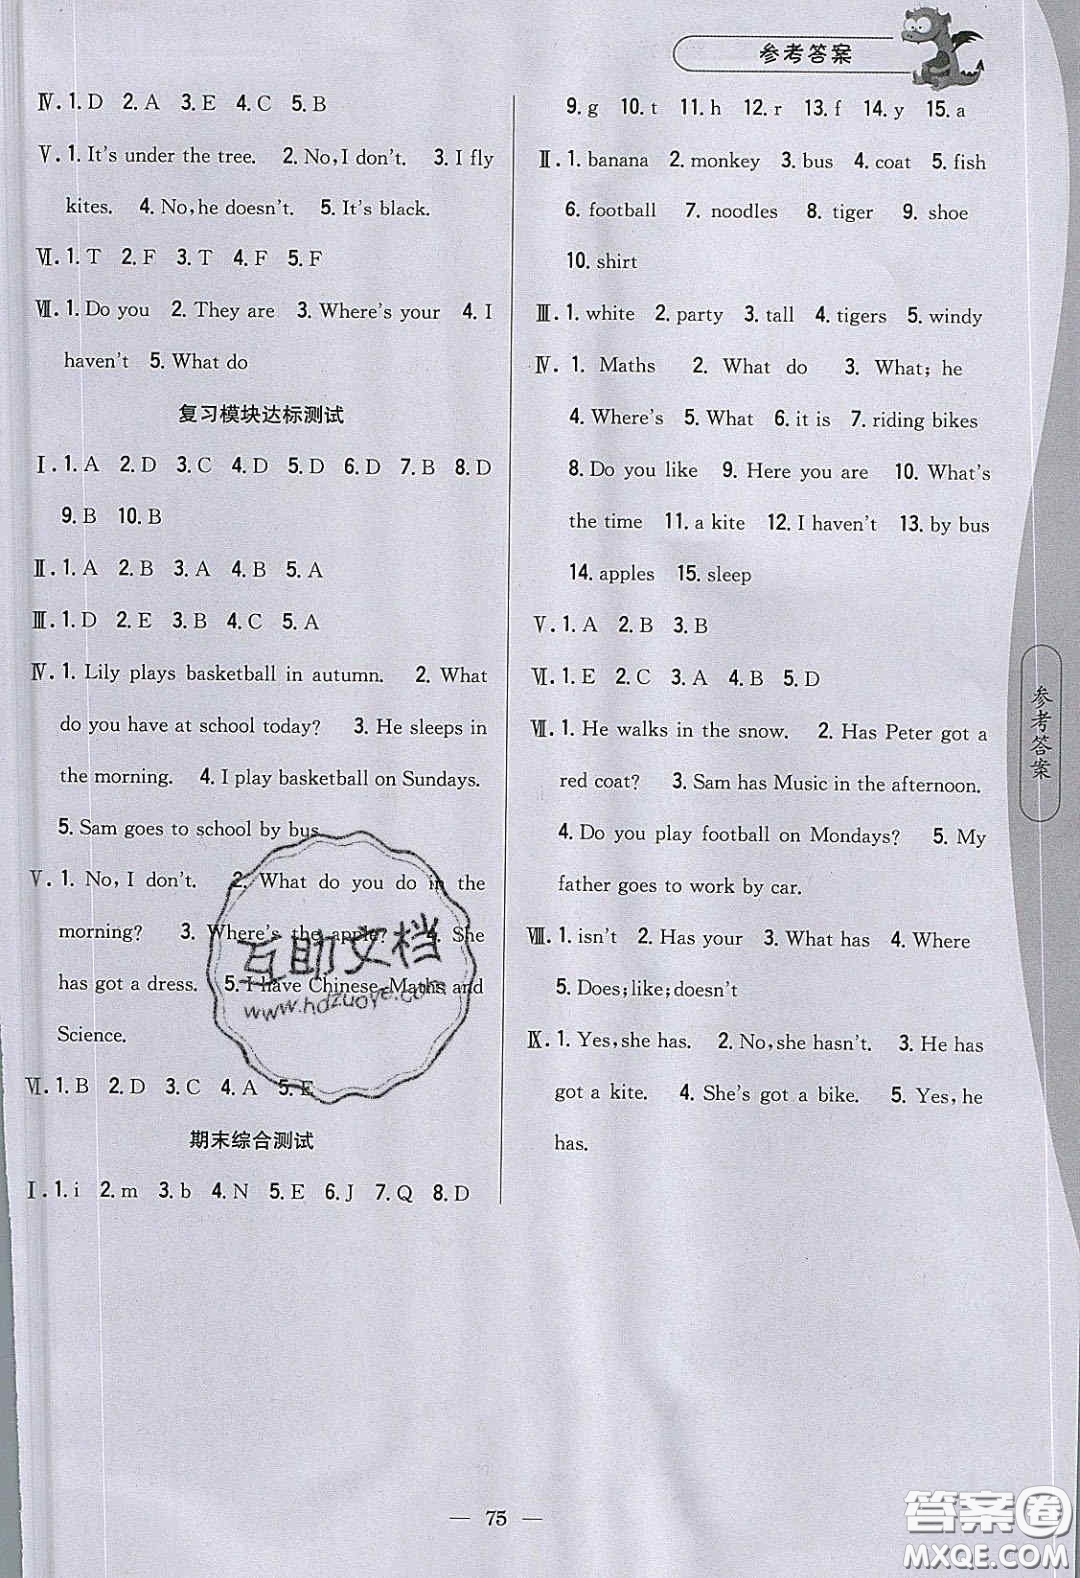 参考答案
Ⅳ. 1. D 2. A 3. E 4. C 5. B
Ⅴ. 1. It's under the tree. 2. No, I don't. 3. I fly
kites. 4. No, he doesn't. 5. It's black.
Ⅵ. 1. T 2. F 3. T 4. F 5. F
Ⅶ. 1. Do you 2. They are 3. Where's your 4. I
haven't 5. What do
复习模块达标测试
Ⅰ. 1. A 2. D 3. C 4. D 5. D 6. D 7. B 8. D
9. B 10. B
Ⅱ. 1. A 2. B 3. A 4. B 5. A
Ⅲ. 1. D 2. E 3. B 4. C 5. A
Ⅳ. 1. Lily plays basketball in autumn. 2. What
do you have at school today? 3. He sleeps in
the morning. 4. I play basketball on Sundays.
5. Sam goes to school by bus.
Ⅴ. 1. No, I don't. 2. What do you do in the
morning? 3. Where's the apple? 4. She
has got a dress. 5. I have Chinese, Maths and
Science.
Ⅵ. 1. B 2. D 3. C 4. A 5. E
期末综合测试
Ⅰ. 1. i 2. m 3. b 4. N 5. E 6. J 7. Q 8. D
9. g 10. t 11. h 12. r 13. f 14. y 15. a
Ⅱ. 1. banana 2. monkey 3. bus 4. coat 5. fish
6. football 7. noodles 8. tiger 9. shoe
10. shirt
Ⅲ. 1. white 2. party 3. tall 4. tigers 5. windy
Ⅳ. 1. Maths 2. What do 3. What; he
4. Where's 5. What 6. it is 7. riding bikes
8. Do you like 9. Here you are 10. What's
the time 11. a kite 12. I haven't 13. by bus
14. apples 15. sleep
Ⅴ. 1. A 2. B 3. B
Ⅵ. 1. E 2. C 3. A 4. B 5. D
Ⅶ. 1. He walks in the snow. 2. Has Peter got a
red coat? 3. Sam has Music in the afternoon.
4. Do you play football on Mondays? 5. My
father goes to work by car.
Ⅷ. 1. isn't 2. Has your 3. What has 4. Where
5. Does; like; doesn't
Ⅸ. 1. Yes, she has. 2. No, she hasn't. 3. He has
got a kite. 4. She's got a bike. 5. Yes, he
has.
参考答案
互助文档
www.hdzuoye.com
— 75 —
答案圈
MXQE.COM